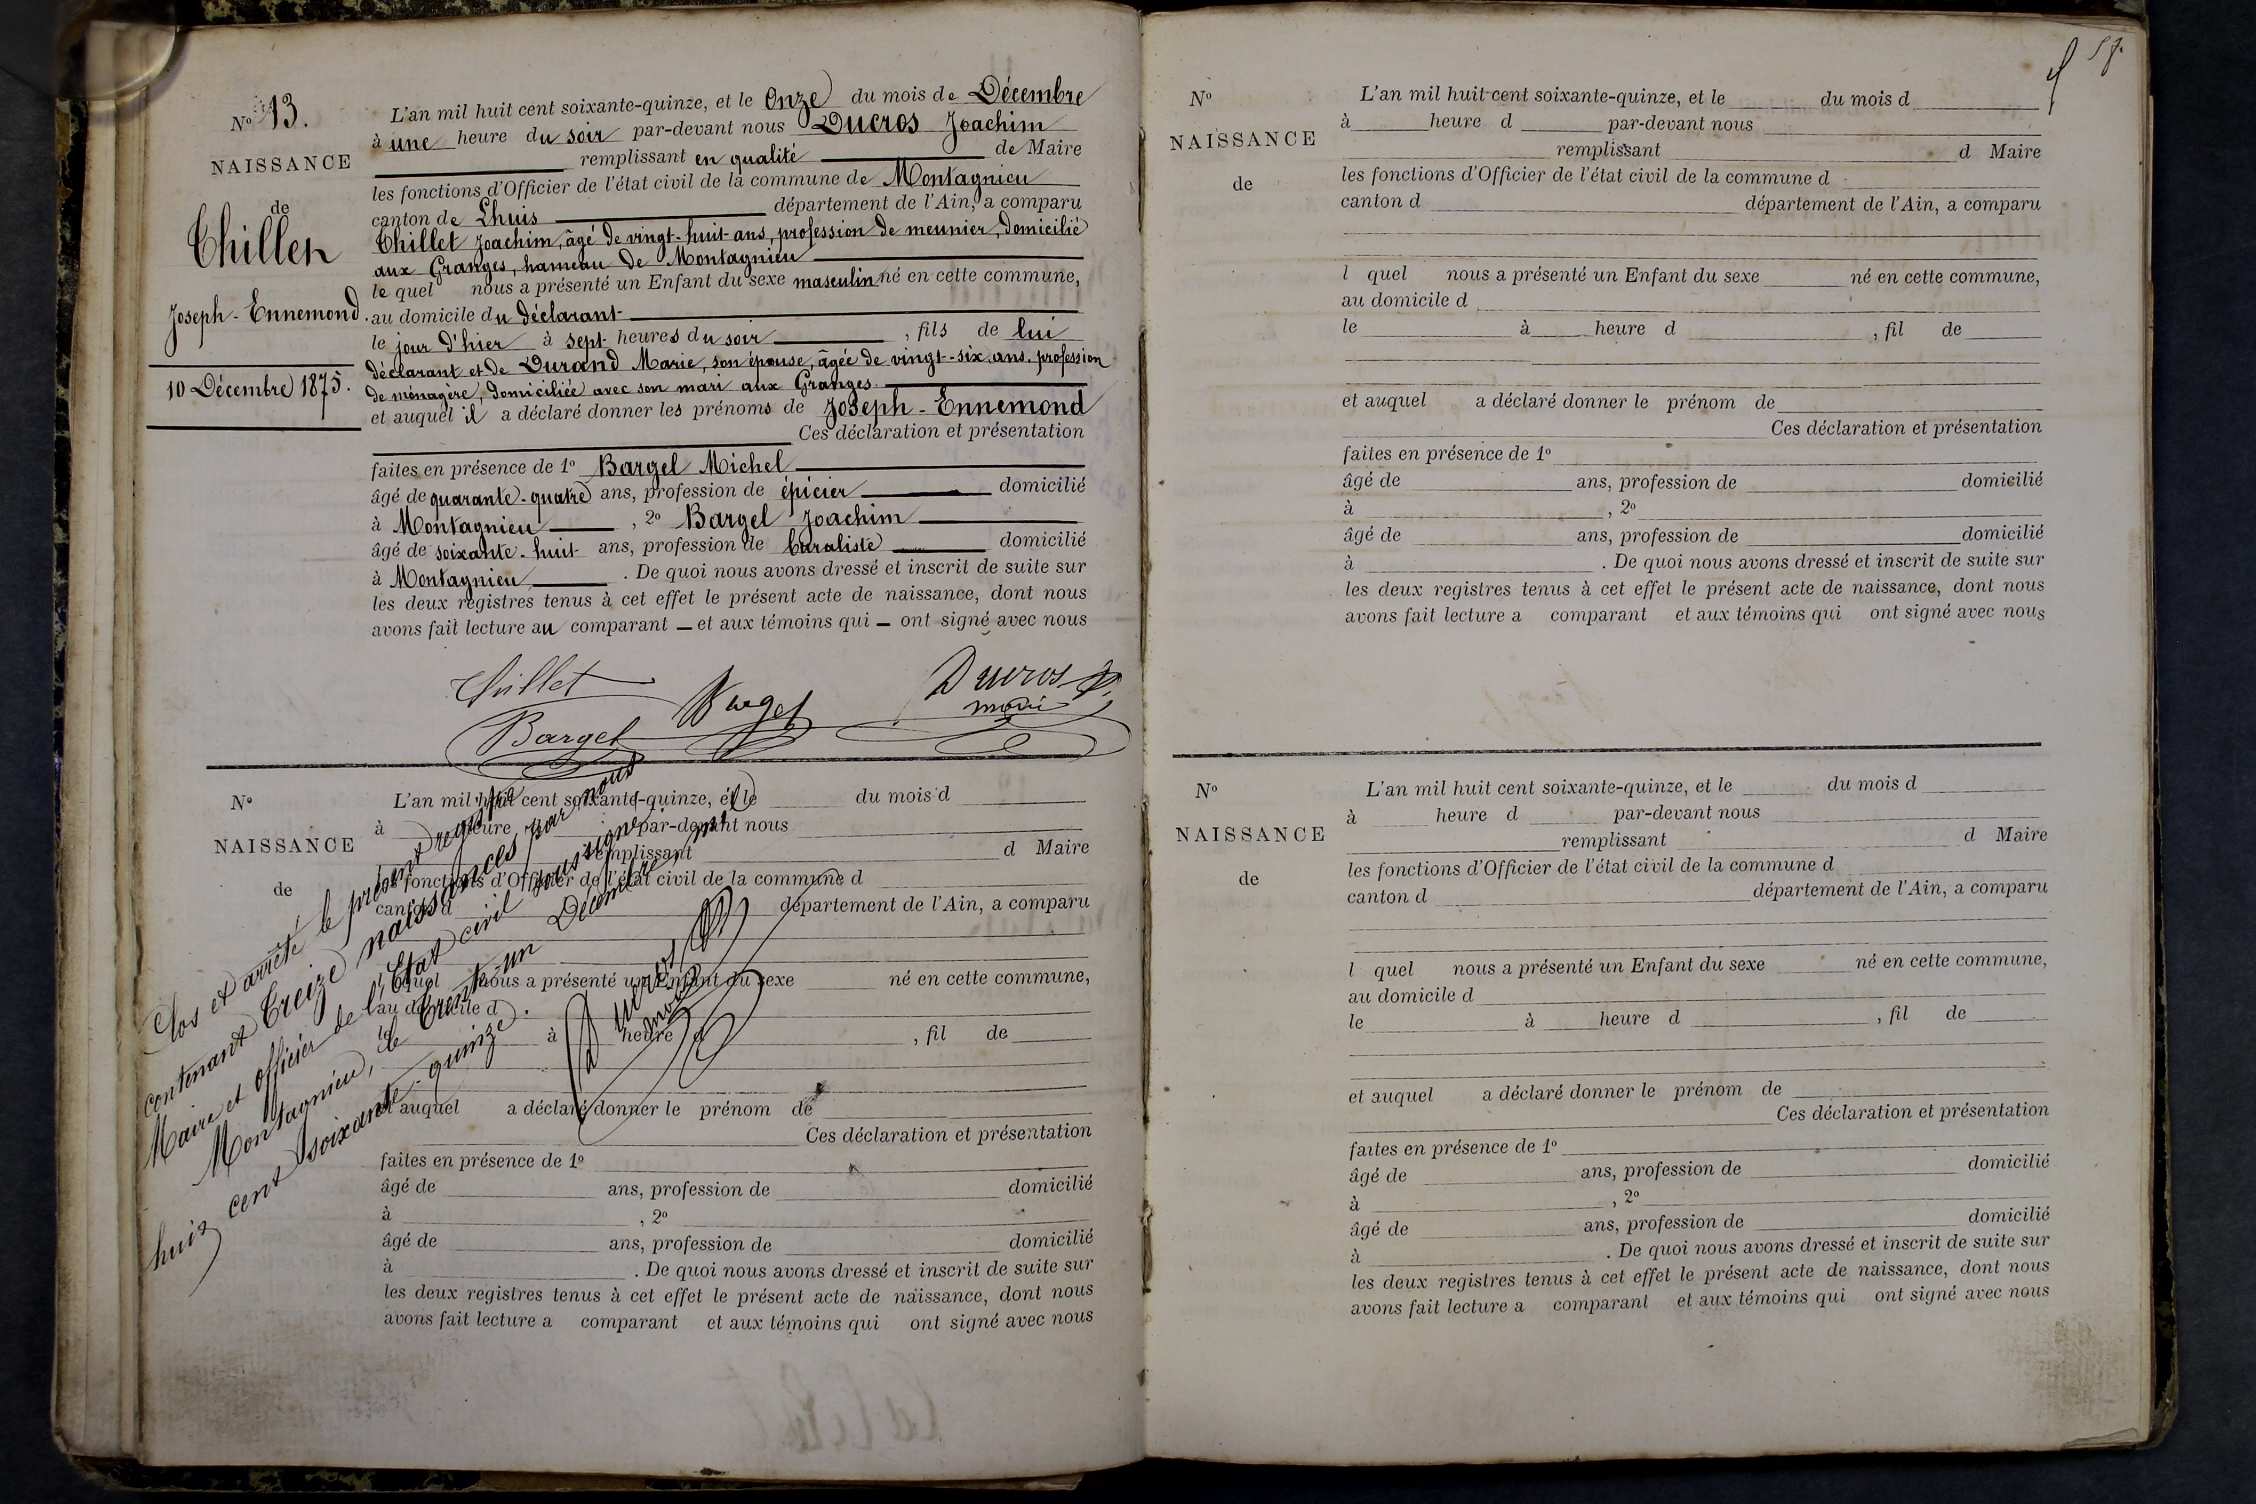 Nº 13.
NAISSANCE
de
Thillet
Joseph-Ennemond.
10 Décembre 1875.
L'an mil huit cent soixante-quinze, et le Onze du mois de Décembre
à une heure du soir par-devant nous Ducros Joachim
remplissant en qualité de Maire
les fonctions d'Officier de l'état civil de la commune de Montagnieu
canton de Lhuis département de l'Ain, a comparu
Thillet Joachim, âgé de vingt-huit ans, profession de meunier, domicilié
aux Granges, hameau de Montagnieu
le quel nous a présenté un Enfant du sexe masculin né en cette commune,
au domicile du déclarant
le jour d'hier à sept heures du soir, fils de lui
déclarant et de Durand Marie, son épouse, âgée de vingt-six ans, profession
de ménagère, domiciliée avec son mari aux Granges.
et auquel il a déclaré donner les prénoms de Joseph-Ennemond
Ces déclaration et présentation
faites en présence de 1º Bargel Michel
âgé de quarante-quatre ans, profession de épicier domicilié
à Montagnieu, 2º Bargel Joachim
âgé de soixante-huit ans, profession de buraliste domicilié
à Montagnieu. De quoi nous avons dressé et inscrit de suite sur
les deux registres tenus à cet effet le présent acte de naissance, dont nous
avons fait lecture au comparant — et aux témoins qui — ont signé avec nous
Thillet
Bargel
Bargel
Ducros
maire
Nº
NAISSANCE
de
L'an mil huit cent soixante-quinze, et le du mois d
à heure par-devant nous
remplissant d Maire
les fonctions d'Officier de l'état civil de la commune d
canton d département de l'Ain, a comparu
l quel nous a présenté un Enfant du sexe né en cette commune,
au domicile d
le à heure d , fil de
et auquel a déclaré donner le prénom de
Ces déclaration et présentation
faites en présence de 1º
âgé de ans, profession de domicilié
à , 2º
âgé de ans, profession de domicilié
à . De quoi nous avons dressé et inscrit de suite sur
les deux registres tenus à cet effet le présent acte de naissance, dont nous
avons fait lecture a comparant et aux témoins qui ont signé avec nous
Clos et arrêté le présent registre
contenant treize naissances par nous
Maire et officier de l'Etat civil soussigné
Montagnieu, le trente-un Décembre mil
huit cent soixante-quinze.
Ducros
maire
57.
Nº
NAISSANCE
de
L'an mil huit cent soixante-quinze, et le du mois d
à heure d par-devant nous
remplissant d Maire
les fonctions d'Officier de l'état civil de la commune d
canton d département de l'Ain, a comparu
l quel nous a présenté un Enfant du sexe né en cette commune,
au domicile d
le à heure d , fil de
et auquel a déclaré donner le prénom de
Ces déclaration et présentation
faites en présence de 1º
âgé de ans, profession de domicilié
à , 2º
âgé de ans, profession de domicilié
à . De quoi nous avons dressé et inscrit de suite sur
les deux registres tenus à cet effet le présent acte de naissance, dont nous
avons fait lecture a comparant et aux témoins qui ont signé avec nous
Nº
NAISSANCE
de
L'an mil huit cent soixante-quinze, et le du mois d
à heure d par-devant nous
remplissant d Maire
les fonctions d'Officier de l'état civil de la commune d
canton d département de l'Ain, a comparu
l quel nous a présenté un Enfant du sexe né en cette commune,
au domicile d
le à heure d , fil de
et auquel a déclaré donner le prénom de
Ces déclaration et présentation
faites en présence de 1º
âgé de ans, profession de domicilié
à , 2º
âgé de ans, profession de domicilié
à . De quoi nous avons dressé et inscrit de suite sur
les deux registres tenus à cet effet le présent acte de naissance, dont nous
avons fait lecture a comparant et aux témoins qui ont signé avec nous